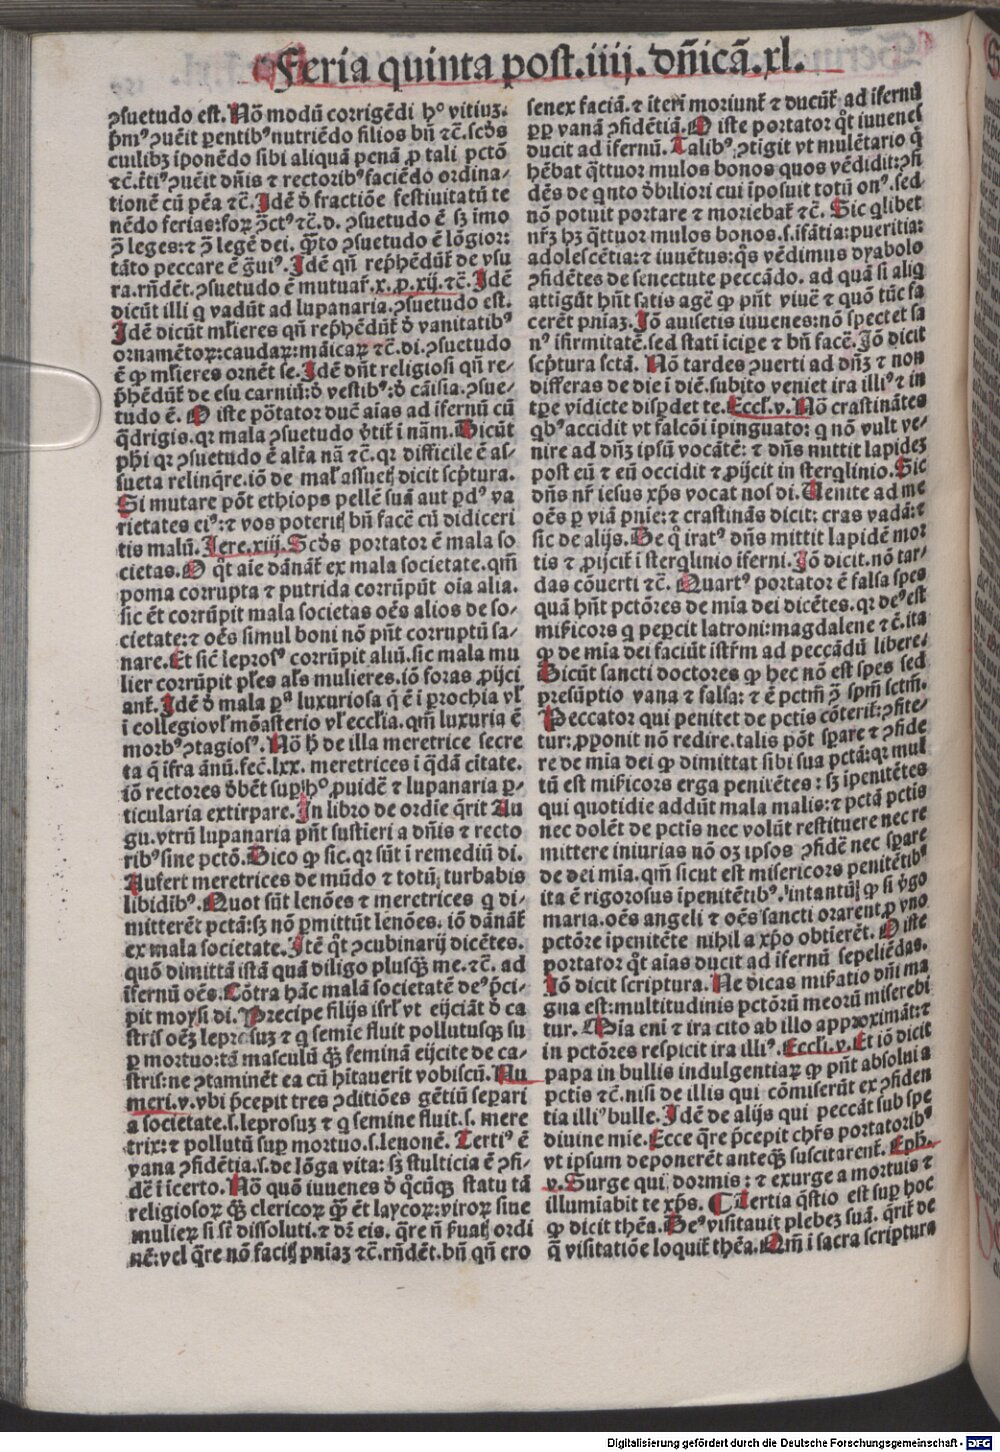 Feria quinta post.iiij.dñicã.xl.
ↄsuetudo est.Nõ modũ corrigẽdi hᵒ vitiuꝫ.
p̃mꝰ ↄuẽit ꝑentibꝰ nutriẽdo filios bñ ⁊c̃.scd̃s
cuilibꝫ ĩponẽdo sibi aliquã penã ꝓ tali pctõ
⁊c̃.t̃tiꝰ ↄuẽit dñis ⁊ rectoribꝰ faciẽdo ordina-
tionẽ cũ pẽa ⁊c̃.Idẽ d̃ fractiõe festiuitatũ te
nẽdo ferias:foꝝ ↄ̃ctꝰ ⁊c̃.d. ↄsuetudo ẽ sꝫ imo
ↄ̃ leges:⁊ ↄ̃ legẽ dei. q̃to ↄsuetudo ẽ lõgior:
tãto peccare ẽ g̃uiꝰ.Idẽ qñ rep̃hẽdũt̃ de vsu
ra.rñdẽt.ↄsuetudo ẽ mutuar̃.x.ꝓ.xij.⁊c̃.Idẽ
dicũt illi q vadũt ad lupanaria.ↄsuetudo est.
Idẽ dicũt ml̃ieres qñ rep̃hẽdũt̃ d̃ vanitatibꝰ
ornamẽtoꝝ:caudaꝝ:mãicaꝝ ⁊c̃.di.ↄsuetudo
ẽ ꝙ ml̃ieres ornẽt se.Idẽ dñt religiosi qñ re-
p̃hẽdũt̃ de esu carniũ:d̃ vestibꝰ:d̃ cãisia.ↄsue-
tudo ẽ.O iste põtator ducẽ aĩas ad ĩfernũ cũ
q̃drigis.qꝛ mala ↄsuetudo v̓tit̃ ĩ nãm.Dicũt
ph̃i qꝛ ↄsuetudo ẽ alt̃a nã ⁊c̃.qꝛ difficile ẽ as-
sueta relinq̃re.iõ de mal̃ assuetꝭ dicit scp̃tura.
Si mutare põt ethiops pellẽ suã aut ꝑdꝰ va
rietates eiꝰ:⁊ vos poteritꝭ bñ facẽ cũ didiceri
tis malũ.Iere.xiij.Scd̃s portator ẽ mala so
cietas.O q̃t aĩe dãnãt̃ ex mala societate.qm̃
poma corrupta ⁊ putrida corrũpũt oĩa alia.
sic ẽt corrũpit mala societas oẽs alios de so-
cietate:⁊ oẽs simul boni nõ pñt corruptũ sa-
nare.Et sic̃ leprosꝰ corrũpit aliũ.sic mala mu
lier corrũpit pl̃es al̃s mulieres.iõ foras ꝓijci
ant̃.Idẽ d̃ mala pᵃ luxuriosa q̃ ẽ ĩ prochia vl̃
ĩ collegio vl̃ mõasterio vl̃ eccl̃ia.qm̃ luxuria ẽ
morbꝰ ↄtagiosꝰ.Nõ h̃ de illa meretrice secre
ta q̃ ĩfra ãnũ.fec̃.lxx. meretrices ĩ q̃dã cĩtate.
iõ rectores d̃bẽt suꝑ hᵒ ꝓuidẽ ⁊ lupanaria ꝑ-
ticularia extirpare.In libro de ordĩe q̃rit Au
gu.vtrũ lupanaria pñt sustĩeri a dñis ⁊ recto
ribꝰ sine pctõ.Dico ꝙ sic.qꝛ sũt ĩ remediũ di.
Aufert meretrices de mũdo ⁊ totũ turbabis
libidĩbꝰ.Quot sũt lenões ⁊ meretrices q di-
mitterẽt pctã:sꝫ nõ ꝑmittũt lenões. iõ dãnãt̃
ex mala societate.Itẽ q̃t ↄcubinarij dicẽtes.
quõ dimittã istã quã diligo plusq̃ꝫ me.⁊c̃. ad
ĩfernũ oẽs.Cõtra hãc malã societatẽ deꝰ p̃ci-
pit moysi di.Precipe filijs isrl̃ vt eijciãt d̃ ca
stris oẽꝫ leprosuꝫ ⁊ q semĩe fluit pollutusqꝫ su
ꝑ mortuo:tã masculũ q̃ꝫ feminã eijcite de ca-
stris:ne ↄtaminẽt ea cũ hĩtauerit vobiscũ.Nu
meri.v.vbi p̃cepit tres ↄditiões gẽtiũ seꝑari
a societate.s.leprosuꝫ ⁊ q semine fluit.s. mere
trix:⁊ pollutũ suꝑ mortuo.s.lenonẽ. Tertiꝰ ẽ
vana ↄfidẽtia.s.de lõga vita:sꝫ stulticia ẽ ↄfi-
dẽ ĩ ĩcerto.Nõ quõ iuuenes d̃ q̃cũqꝫ statu tã
religiosoꝝ q̃ꝫ clericoꝝ q̃ꝫ ẽt laycoꝝ:viroꝝ siue
mulieꝝ si st̃ dissoluti.⁊ dr̃ eis. q̃re ñ p̃uatꝭ ordi
nẽ:vel q̃re nõ facitꝭ pñiaꝫ ⁊c̃.rñdẽt.bñ qñ ero
senex faciã.⁊ iterĩ moriunt̃ ⁊ ducũt̃ ad ĩfernũ
ꝓꝑ vanã ↄfidẽtiã.O iste portator q̃t iuuenes
ducit ad ĩfernũ.Talibꝰ ↄtigit vt mulẽtario q̃
hẽbat q̃ttuor mulos bonos quos vẽdidit:ↄfi
dẽs de qnto d̃biliori cui ĩposuit totũ onꝰ.sed
nõ potuit portare ⁊ moriebat̃ ⁊c̃. Sic qlibet
nr̃ꝫ hꝫ q̃ttuor mulos bonos.s.ĩfãtia:pueritia:
adolescẽtia:⁊ iuuẽtus:q̃s vẽdimus dyabolo
ↄfidẽtes de senectute peccãdo. ad quã si aliq
attigũt hñt satis agẽ ꝙ pñt viuẽ ⁊ quõ tũc fa
cerẽt pñiaꝫ.Iõ auisetis iuuenes:nõ spectet sa
nꝰ ĩfirmitatẽ.sed stati ĩcipe ⁊ bñ facẽ.Iõ dicit
scp̃tura sctã. Nõ tardes ↄuerti ad dñꝫ ⁊ non
differas de die ĩ diẽ.subito veniet ira illiꝰ ⁊ in
tꝑe vĩdicte disꝑdet te.Eccl̃.v.Nõ crastinãtes
qbꝰ accidit vt falcõi ĩpinguato: q nõ vult ve-
nire ad dñꝫ ipsũ vocãtẽ: ⁊ dñs mittit lapideꝫ
post eũ ⁊ eũ occidit ⁊ ꝓijcit in sterqlinio.Sic
dñs nr̃ iesus xp̃s vocat nos di.Uenite ad me
oẽs ꝑ viã pnĩe:⁊ crastinãs dicit: cras vadã:⁊
sic de alijs.De q̃ iratꝰ dñs mittit lapidẽ mor
tis ⁊ ꝓijcit̃ ĩ sterqlinio ĩferni.Iõ dicit.nõ tar-
das cõuerti ⁊c̃. Quartꝰ portator ẽ falsa spes
quã hñt pctõres de mĩa dei dicẽtes.qꝛ deꝰ est
mis̃icors q peꝑcit latroni:magdalene ⁊c̃.ita
ꝙ de mĩa dei faciũt ĩstr̃m ad peccãdũ libere.
Dicũt sancti doctores ꝙ hec nõ est spes sed
presũptio vana ⁊ falsa: ⁊ ẽ pctm̃ ĩ spm̃ sctm̃.
Peccator qui penitet de pctis cõterit̃:ↄfite-
tur:ꝓponit nõ redire.talis põt sꝑare ⁊ ↄfide
re de mĩa dei ꝙ dimittat sibi sua pctã:qꝛ mul
tũ est mis̃icors erga penitẽtes: sꝫ ĩpenitẽtes
qui quotidie addũt mala malis:⁊ pctã pctis
nec dolẽt de pctis nec volũt restituere nec re
mittere iniurias nõ oꝫ ipsos ↄfidẽ nec sꝑare
de dei mĩa.qm̃ sicut est misericors penitẽtibꝰ
ita ẽ rigorosus ĩpenitẽtibꝰ. intantũ ꝙ si v̓go
maria.oẽs angeli ⁊ oẽs sancti orarent ꝓ vno
pctõre ĩpenitẽte nihil a xp̃o obtĩerẽt.O iste
portator q̃t aĩas ducit ad ĩfernũ sepeliẽdas.
Iõ dicit scriptura.Ne dicas mis̃atio dñi ma
gna est:multitudinis pctõrũ meorũ miserebi
tur. Mĩa eni ⁊ ira cito ab illo approximãt:⁊
in pctõres respicit ira illiꝰ.Eccli.v.Et iõ dicit
papa in bullis indulgentiaꝝ ꝙ pñt absolui a
pctis ⁊c̃.nisi de illis qui cõmiserũt ex ↄfiden
tia illiꝰ bulle.Idẽ de alijs qui peccãt sub spe
diuine mĩe.Ecce q̃re p̃cepit chr̃s portatoribꝰ
vt ipsum deponerẽt anteq̃ꝫ suscitarent.Eph.
v.Surge qui dormis:⁊ exurge a mortuis ⁊
illumiabit te xp̃s. ¶Tertia q̃stio est suꝑ hoc
ꝙ dicit thẽa.Deꝰ visitauit plebeꝫ suã. q̃rit̃ de
q̃ visitatiõe loquit̃ thẽa.Qm̃ ĩ sacra scriptura
Digitalisierung gefördert durch die Deutsche Forschungsgemeinschaft - DFG